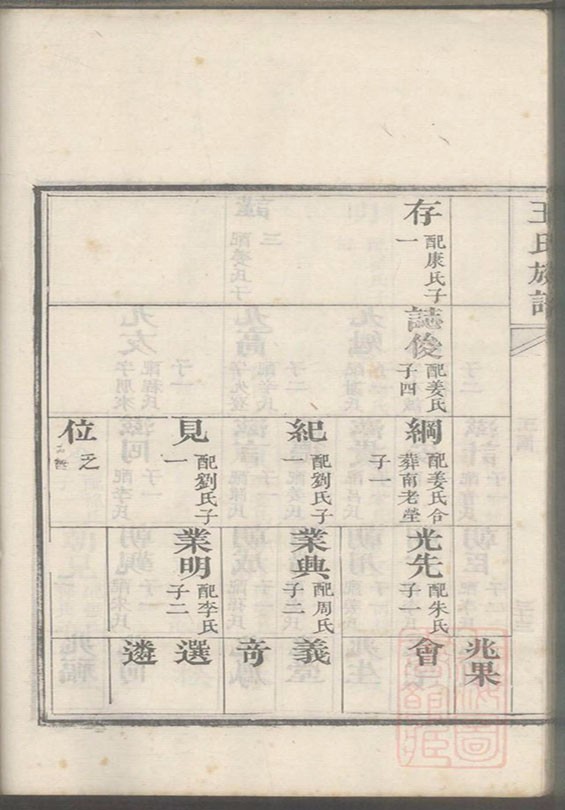 王氏族譜
存 配康氏子一
誌俊 配姜氏子四
綱 配姜氏合葬南老塋子一
紀 配劉氏子一
見 配劉氏子一
位 乏
光先 配朱氏子一
業典 配周氏子二
業明 配李氏子二
兆果
會
義
奇
選
遴